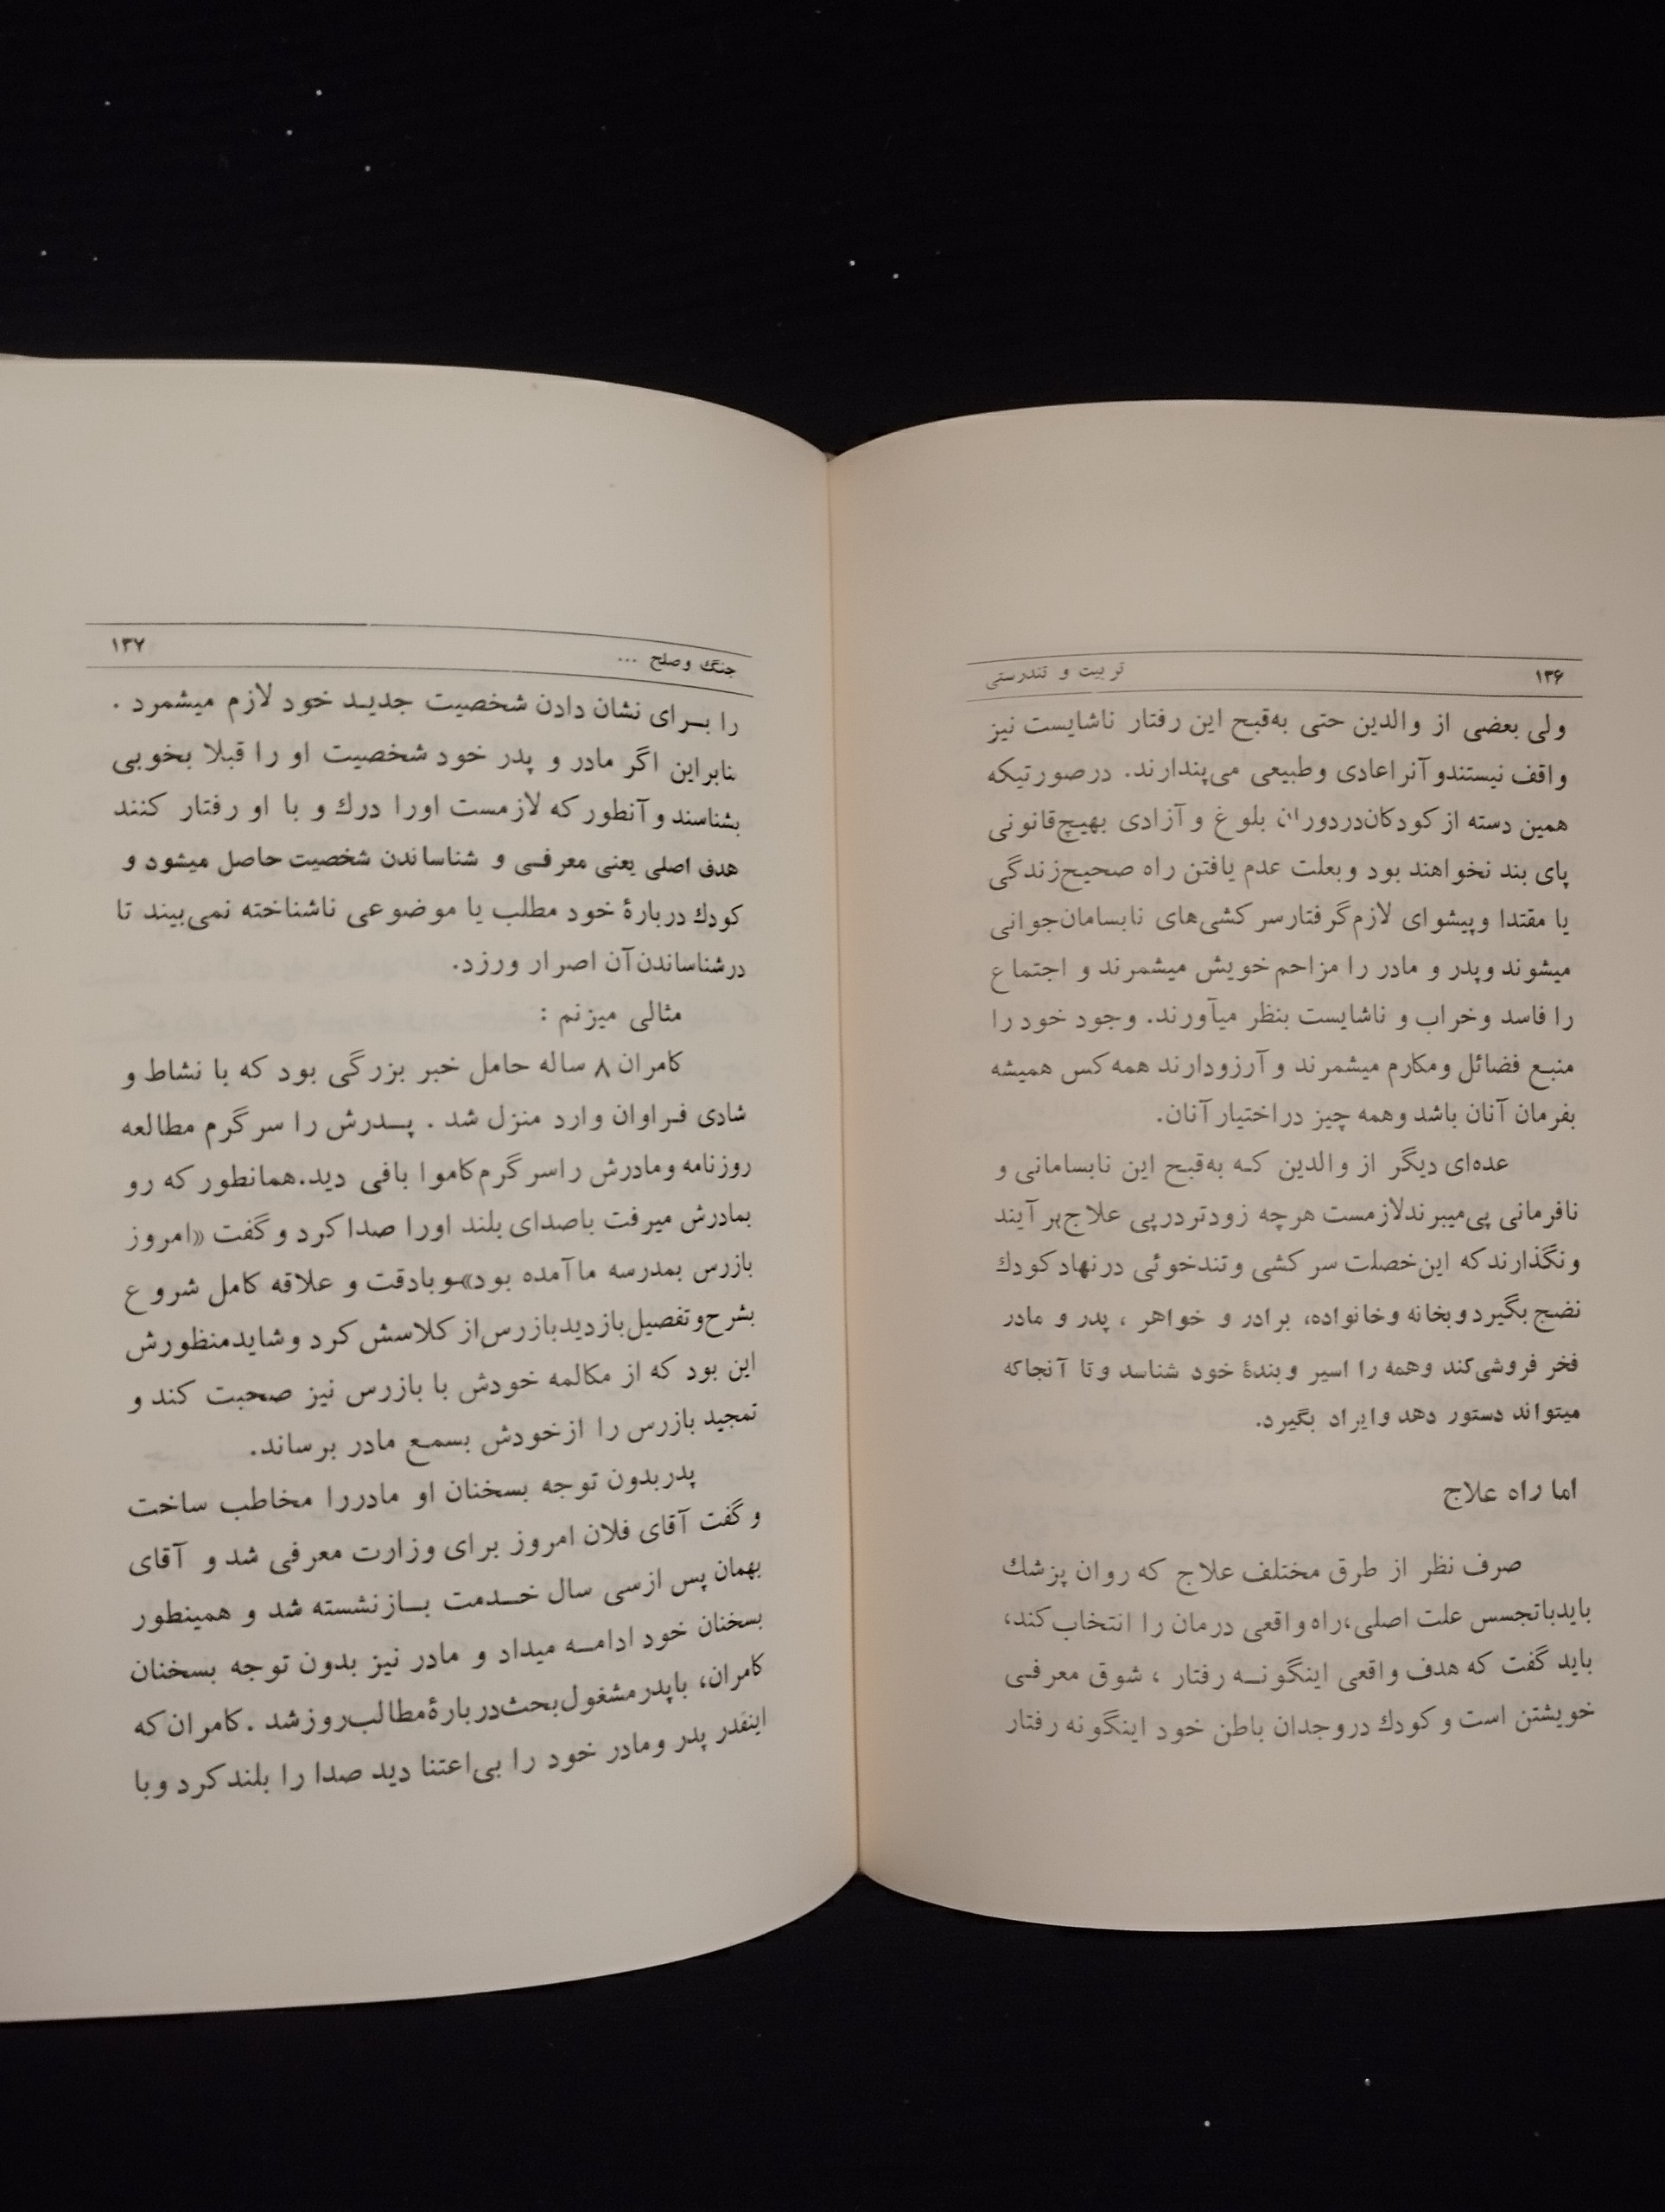 ۱۳۶ تربیت و تندرستی
ولی بعضی از والدین حتی به‌قبح این رفتار ناشایست نیز
واقف نیستندو آنراعادی وطبیعی می‌پندارند. درصورتیکه
همین دسته از کودکان‌دردوران بلوغ و آزادی بهیچ‌قانونی
پای بند نخواهند بود وبعلت عدم یافتن راه صحیح‌زندگی
یا مقتدا وپیشوای لازم‌گرفتارسرکشی‌های نابسامان‌جوانی
میشوند وپدر و مادر را مزاحم خویش میشمرند و اجتماع
را فاسد وخراب و ناشایست بنظر میآورند. وجود خود را
منبع فضائل ومکارم میشمرند و آرزودارند همه کس همیشه
بفرمان آنان باشد وهمه چیز دراختیار آنان.
عده‌ای دیگر از والدین که به‌قبح این نابسامانی و
نافرمانی پی‌میبرندلازمست هرچه زودتردرپی علاج‌بر آیند
ونگذارندکه این‌خصلت سرکشی وتندخوئی درنهاد کودك
نضج بگیرد وبخانه وخانواده، برادر و خواهر ، پدر و مادر
فخر فروشی‌کند وهمه را اسیر وبندهٔ خود شناسد وتا آنجاکه
میتواند دستور دهد وایراد بگیرد.
اما راه علاج
صرف نظر از طرق مختلف علاج که روان پزشك
بایدباتجسس علت اصلی،راه واقعی درمان را انتخاب‌کند،
باید گفت که هدف واقعی اینگونه رفتار ، شوق معرفی
خویشتن است و کودك دروجدان باطن خود اینگونه رفتار
جنگ وصلح ... ۱۳۷
را برای نشان دادن شخصیت جدید خود لازم میشمرد .
بنابراین اگر مادر و پدر خود شخصیت او را قبلا بخوبی
بشناسند و آنطور که لازمست اورا درك و با او رفتار کنند
هدف اصلی یعنی معرفی و شناساندن شخصیت حاصل میشود و
کودك دربارهٔ خود مطلب یا موضوعی ناشناخته نمی‌بیند تا
درشناساندن‌آن اصرار ورزد.
مثالی میزنم :
کامران ۸ ساله حامل خبر بزرگی بود که با نشاط و
شادی فراوان وارد منزل شد . پدرش را سرگرم مطالعه
روزنامه ومادرش راسرگرم‌کاموا بافی دید.همانطور که رو
بمادرش میرفت باصدای بلند اورا صدا کرد و گفت «امروز
بازرس بمدرسه ما آمده بود»وبادقت و علاقه کامل شروع
بشرح‌وتفصیل‌بازدیدبازرس‌از کلاسش کرد وشایدمنظورش
این بود که از مکالمه خودش با بازرس نیز صحبت کند و
تمجید بازرس را ازخودش بسمع مادر برساند.
پدربدون توجه بسخنان او مادررا مخاطب ساخت
و گفت آقای فلان امروز برای وزارت معرفی شد و آقای
بهمان پس ازسی سال خدمت بازنشسته شد و همینطور
بسخنان خود ادامه میداد و مادر نیز بدون توجه بسخنان
کامران، باپدرمشغول‌بحث‌دربارهٔ‌مطالب‌روزشد .کامران‌که
اینقدر پدر ومادر خود را بی‌اعتنا دید صدا را بلندکرد وبا